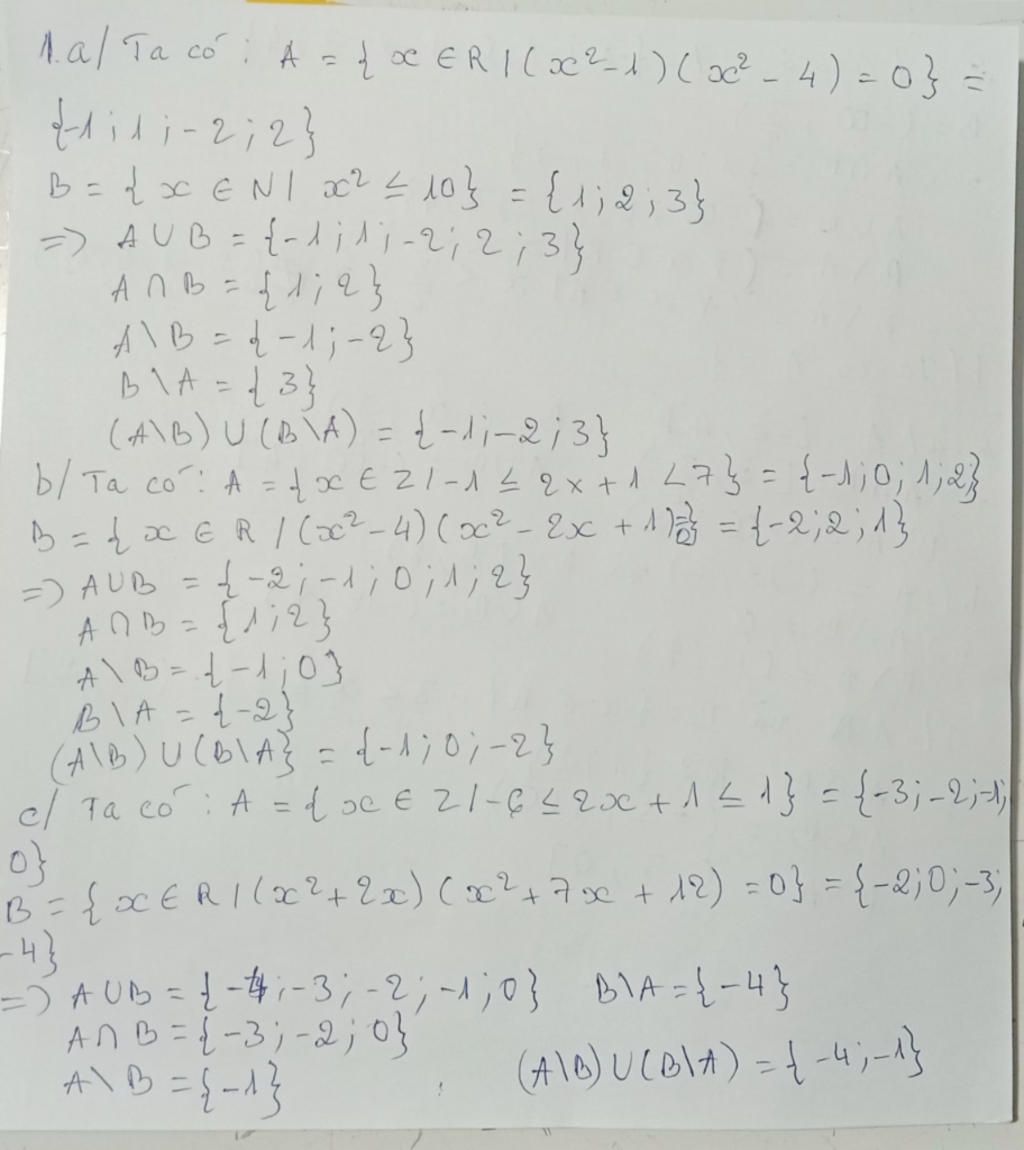 1.a/ Ta có: A = { x ∈ R | (x² - 1)(x² - 4) = 0} =
{-1; 1; -2; 2}
B = { x ∈ N | x² ≤ 10} = {1; 2; 3}
=> A ∪ B = {-1; 1; -2; 2; 3}
A ∩ B = {1; 2}
A \ B = {-1; -2}
B \ A = {3}
(A\B) ∪ (B\A) = {-1; -2; 3}
b/ Ta có: A = {x ∈ Z | -1 ≤ 2x + 1 < 7} = {-1; 0; 1; 2}
B = { x ∈ R | (x² - 4)(x² - 2x + 1) = 0} = {-2; 2; 1}
=> A ∪ B = {-2; -1; 0; 1; 2}
A ∩ B = {1; 2}
A \ B = {-1; 0}
B \ A = {-2}
(A\B) ∪ (B\A} = {-1; 0; -2}
c/ Ta có: A = { x ∈ Z | -6 ≤ 2x + 1 ≤ 1} = {-3; -2; -1;
0}
B = { x ∈ R | (x² + 2x)(x² + 7x + 12) = 0} = {-2; 0; -3;
-4}
=> A ∪ B = {-4; -3; -2; -1; 0} B\A = {-4}
A ∩ B = {-3; -2; 0}
A \ B = {-1} (A\B) ∪ (B\A) = {-4; -1}